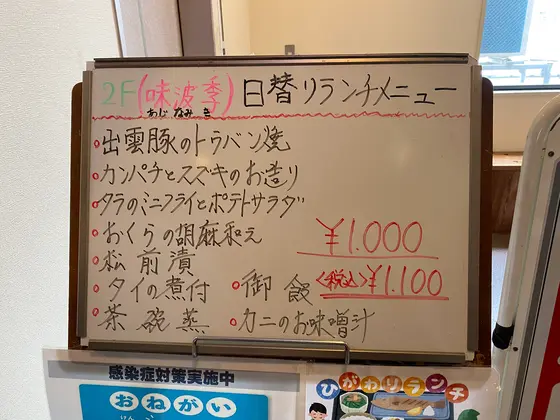 2F(味波季) 日替りランチメニュー
あじなみき
出雲豚のトウバン焼
カンパチとスズキのお造り
タラのミニフライとポテトサラダ
おくらの胡麻和え
松前漬
タイの煮付
茶碗蒸
御飯
カニのお味噌汁
¥1.000
<税込>¥1.100
感染症対策実施中
おねがい
ひがわりランチ